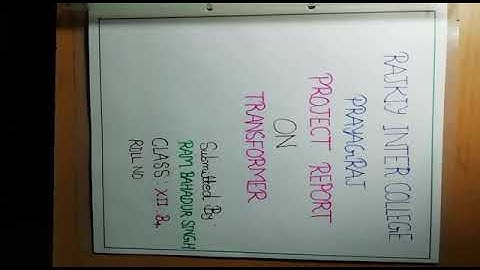 RAJKIY INTER COLLEGE
PRAYAGRAJ
PROJECT REPORT
ON
TRANSFORMER
Submitted By:
RAM BAHADUR SINGH
CLASS: XII B4
ROLL NO